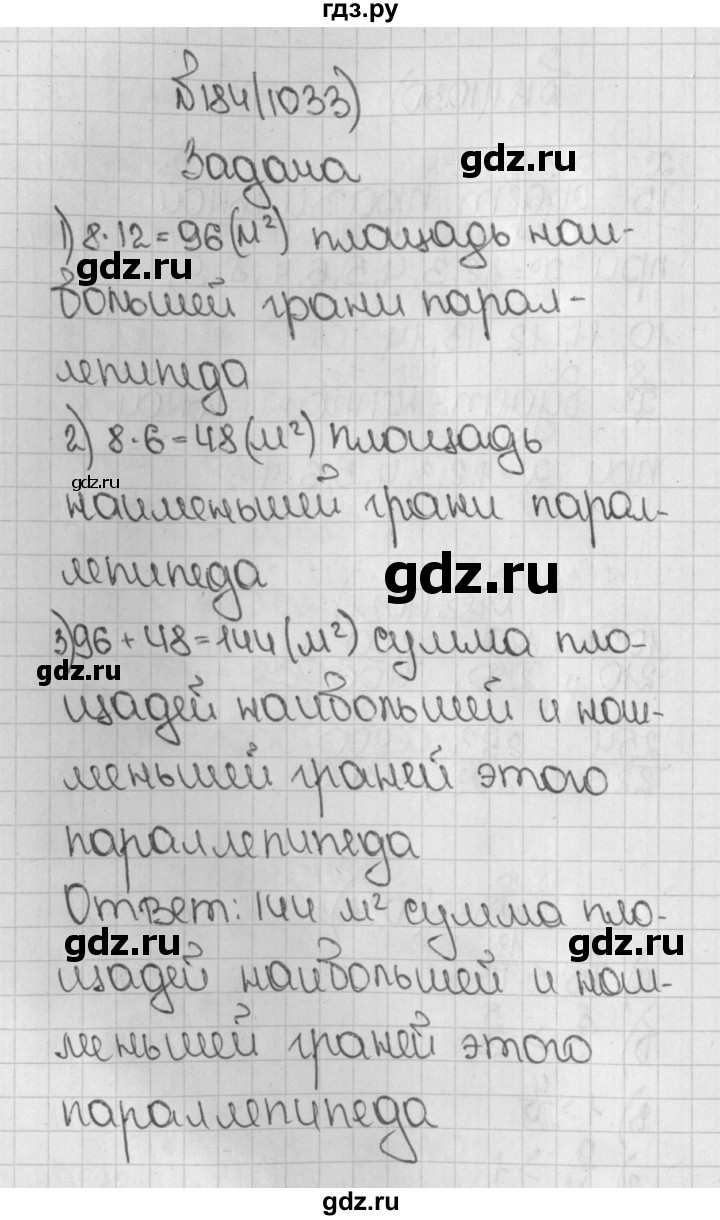 гдз.ру
№184(1033)
Задача
gdz.ru
1) 8·12=96(м²) площадь наи-
gdz.ru
большей грани парал-
лепипеда
2) 8·6=48(м²) площадь
gdz.ru
наименьшей грани парал-
лепипеда
gdz.ru
3)96+48=144(м²) сумма пло-
gdz.ru
щадей наибольшей и наи-
меньшей граней этого
параллепипеда
Ответ: 144 м² сумма пло-
gdz.ru gdz.ru
щадей наибольшей и наи-
меньшей граней этого
параллепипеда
gdz.ru